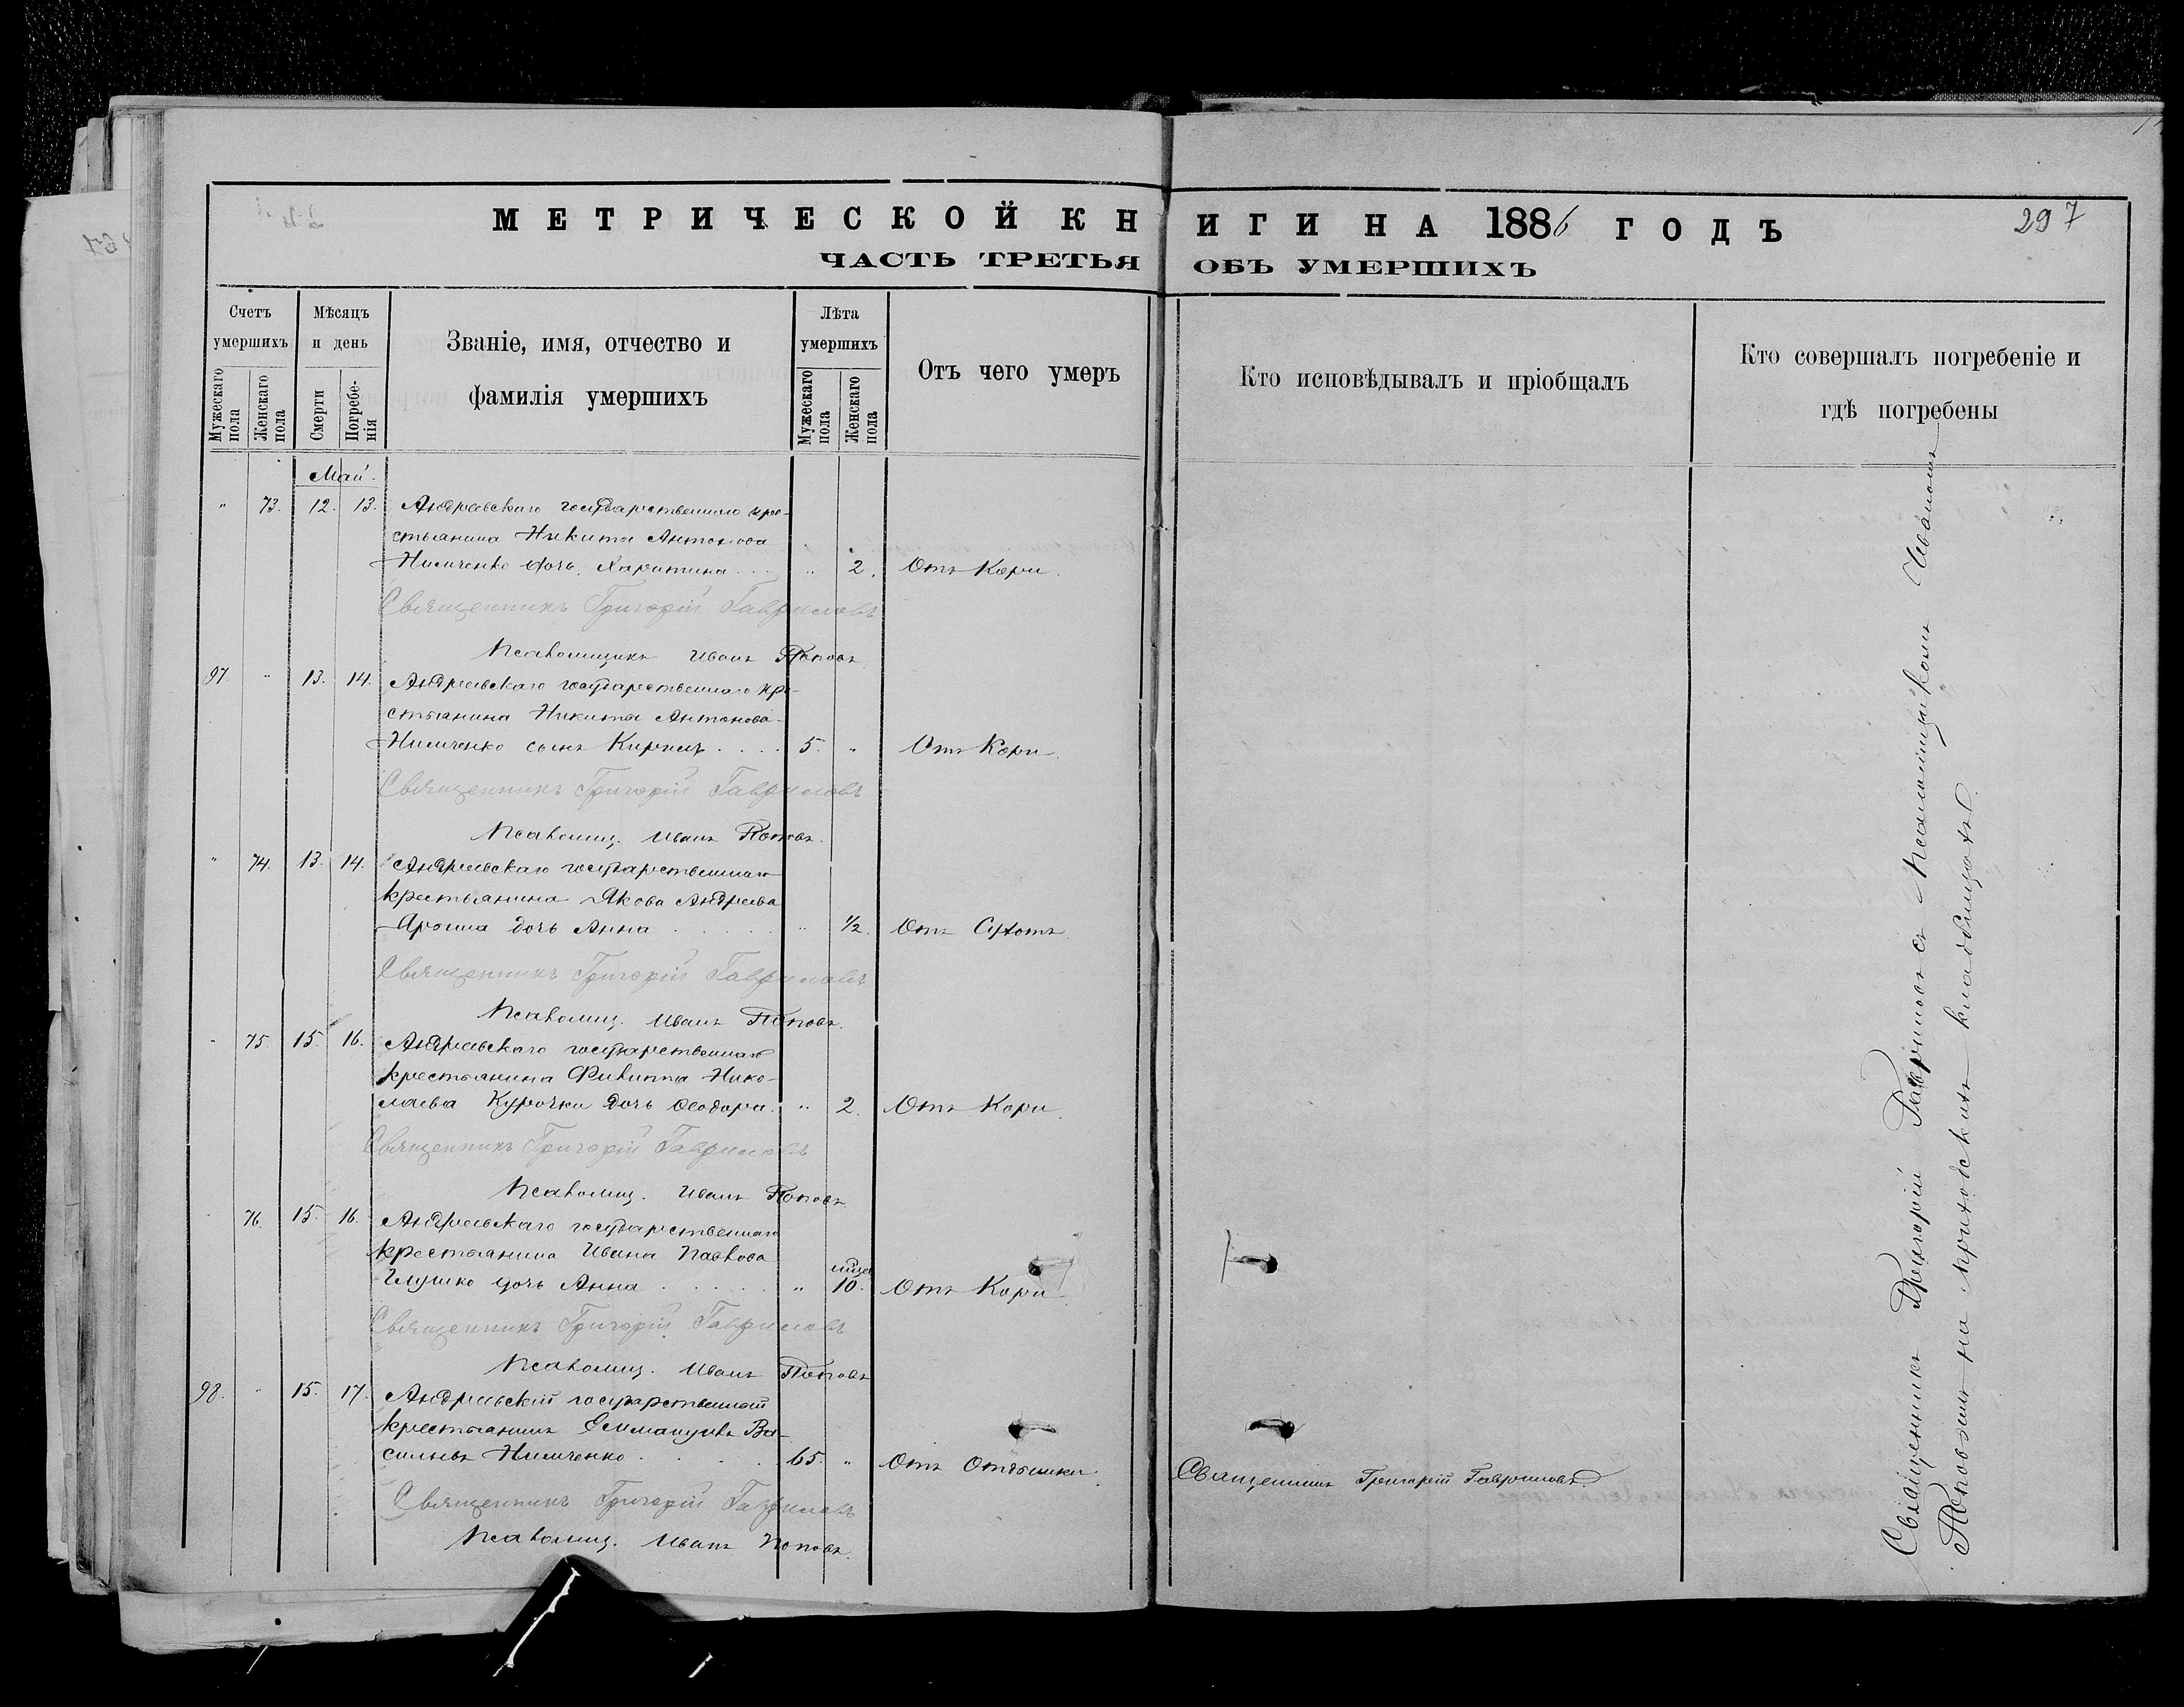 МЕТРИЧЕСКОЙ КНИГИ НА 1886 ГОДЪ
297
ЧАСТЬ ТРЕТЬЯ ОБЪ УМЕРШИХЪ
Счетъ умершихъ
Мужескаго пола
Женскаго пола
Мѣсяцъ и день
Смерти
Погребенія
Званіе, имя, отчество и фамилія умершихъ
Лѣта умершихъ
Мужескаго пола
Женскаго пола
Отъ чего умеръ
Кто исповѣдывалъ и пріобщалъ
Кто совершалъ погребеніе и гдѣ погребены
Май.
" 73. 12. 13. Андреевскаго государственнаго кре-
стьянина Никиты Антонова
Нимченко дочь Харитина . . . " 2. Отъ Кори.
Священникъ Григорій Гавриловъ
Псаломщикъ Иванъ Поповъ.
97. " 13. 14. Андреевскаго государственнаго кре-
стьянина Никиты Антонова
Нимченко сынъ Кирилъ . . . . 5. " Отъ Кори.
Священникъ Григорій Гавриловъ
Псаломщ. Иванъ Поповъ.
" 74. 13. 14. Андреевскаго государственнаго
крестьянина Якова Андреева
Яроша дочь Анна . . . . . " 1/2. Отъ Сухотъ.
Священникъ Григорій Гавриловъ
Псаломщ. Иванъ Поповъ.
" 75. 15. 16. Андреевскаго государственнаго
крестьянина Филиппа Нико-
лаева Курочки дочь Ѳеодора. " 2. Отъ Кори.
Священникъ Григорій Гавриловъ
Псаломщ. Иванъ Поповъ
76. 15. 16. Андреевскаго государственнаго
крестьянина Ивана Павлова
Глушко дочь Анна . . . . . " 10. Отъ Кори.
Священникъ Григорій Гавриловъ
Псаломщ. Иванъ Поповъ
98. " 15. 17. Андреевскій государственный
крестьянинъ Еммануилъ Ва-
сильевъ Нимченко . . . . . 65. " Отъ Отдышки
Священникъ Григорій Гавриловъ
Священникъ Григорій Гавриловъ
Псаломщ. Иванъ Поповъ.
Священникъ Григорій Гавриловъ съ Псаломщикомъ Иваномъ
Поповымъ на приходскихъ кладбищахъ.